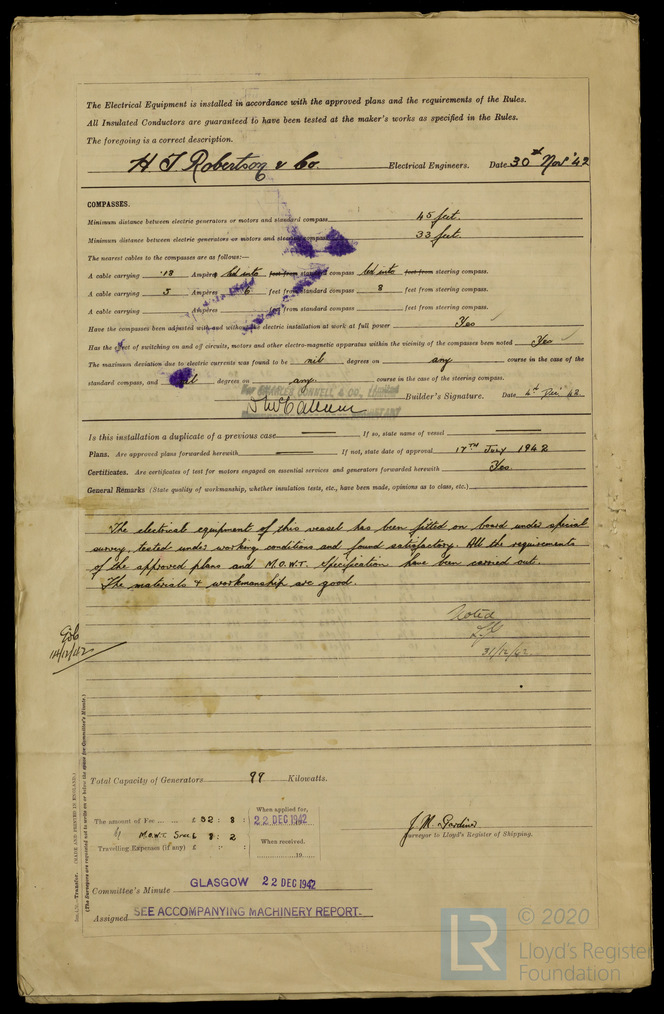 The Electrical Equipment is installed in accordance with the approved plans and the requirements of the Rules.
All Insulated Conductors are guaranteed to have been tested at the maker's works as specified in the Rules.
The foregoing is a correct description.
H J Robertson & Co. Electrical Engineers. Date 30th Nov '42
COMPASSES.
Minimum distance between electric generators or motors and standard compass 45 feet.
Minimum distance between electric generators or motors and steering compass 33 feet.
The nearest cables to the compasses are as follows:—
A cable carrying .18 Ampères led into feet from standard compass led into feet from steering compass.
A cable carrying 5 Ampères 6 feet from standard compass 8 feet from steering compass.
A cable carrying Ampères feet from standard compass feet from steering compass.
Have the compasses been adjusted with and without the electric installation at work at full power Yes
Has the effect of switching on and off circuits, motors and other electro-magnetic apparatus within the vicinity of the compasses been noted Yes
The maximum deviation due to electric currents was found to be nil degrees on any course in the case of the
standard compass, and nil degrees on any course in the case of the steering compass.
For CHARLES CONNELL & CO., Limited
Builder's Signature. Date 4th Dec 42
Is this installation a duplicate of a previous case If so, state name of vessel
Plans. Are approved plans forwarded herewith If not, state date of approval 17TH July 1942
Certificates. Are certificates of test for motors engaged on essential services and generators forwarded herewith Yes
General Remarks (State quality of workmanship, whether insulation tests, etc., have been made, opinions as to class, etc.)
The electrical equipment of this vessel has been fitted on board under special
survey, tested under working conditions and found satisfactory. All the requirements
of the approved plans and M.O.W.T. Specification have been carried out.
The materials & workmanship are good.
Noted
31/12/42
14/12/42
Total Capacity of Generators 99 Kilowatts.
The amount of Fee £ 32 : 8 : When applied for, 22 DEC 1942
M.O.W.T. Spec £ 8 : 2
Travelling Expenses (if any) £ : : When received, 19
J. M. Gardiner
Surveyor to Lloyd's Register of Shipping.
Committee's Minute GLASGOW 22 DEC 1942
Assigned SEE ACCOMPANYING MACHINERY REPORT.
Transfer. (MADE AND PRINTED IN ENGLAND.)
(The Surveyors are requested not to write on or below the space for Committee's Minute.)
LR © 2020
Lloyd's Register
Foundation